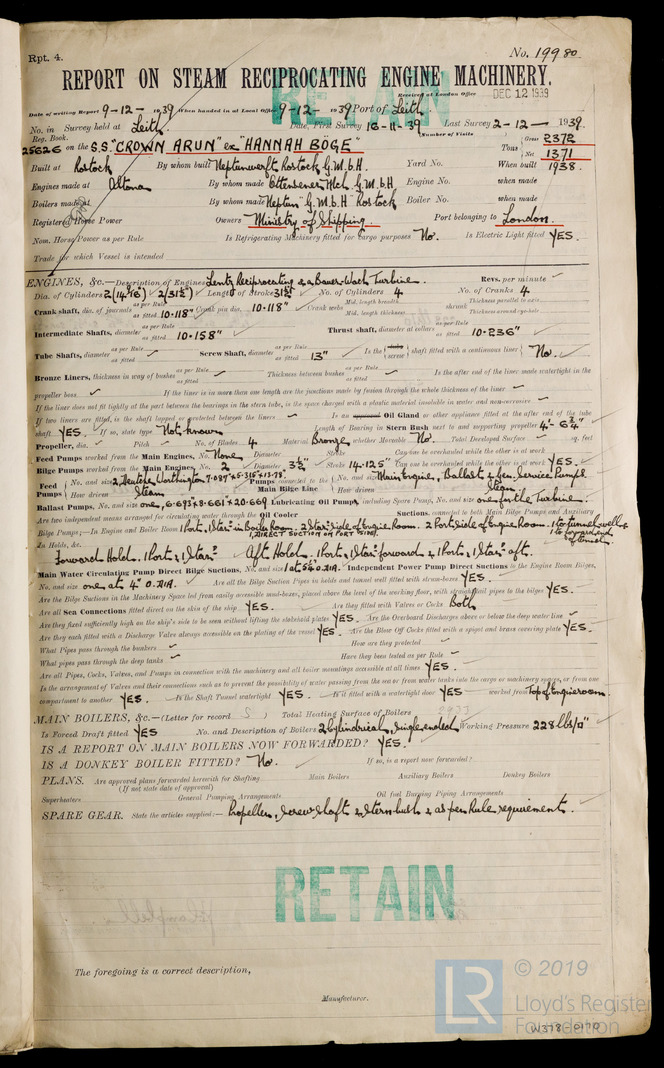 Rpt. 4.
No. 19980
REPORT ON STEAM RECIPROCATING ENGINE MACHINERY.
RETAIN
Received at London Office DEC 12 1939
Date of writing Report 9-12- 1939 When handed in at Local Office 9-12- 1939 Port of Leith.
No. in Reg. Book. Survey held at Leith. Date, First Survey 16-11-39 Last Survey 2-12- 1939.
(Number of Visits
25626 on the S.S. "CROWN ARUN" ex "HANNAH BÖGE" Tons Gross 2372 Net 1371
Built at Rostock By whom built Neptunwerft Rostock G.M.b.H Yard No. When built 1938.
Engines made at Altona By whom made Ottensener Mch G.M.b.H Engine No. when made
Boilers made at By whom made Neptun G.M.b.H Rostock Boiler No. when made
Registered Horse Power Owners Ministry of Shipping. Port belonging to London.
Nom. Horse Power as per Rule Is Refrigerating Machinery fitted for cargo purposes No. Is Electric Light fitted YES.
Trade for which Vessel is intended
ENGINES, &c.—Description of Engines Lentz Reciprocating & a Bauer Wach Turbine. Revs. per minute
Dia. of Cylinders 2(14 9/16") 2(31½") Length of Stroke 31½" No. of Cylinders 4 No. of Cranks 4
Crank shaft, dia. of journals as per Rule as fitted 10·118" Crank pin dia. 10·118" Crank webs Mid. length breadth Mid. length thickness shrunk Thickness parallel to axis Thickness around eye-hole
Intermediate Shafts, diameter as per Rule as fitted 10·158" Thrust shaft, diameter at collars as per Rule as fitted 10·236"
Tube Shafts, diameter as per Rule as fitted Screw Shaft, diameter as per Rule as fitted 13" Is the tube screw shaft fitted with a continuous liner No.
Bronze Liners, thickness in way of bushes as per Rule as fitted Thickness between bushes as per Rule as fitted Is the after end of the liner made watertight in the
propeller boss If the liner is in more than one length are the junctions made by fusion through the whole thickness of the liner
If the liner does not fit tightly at the part between the bearings in the stern tube, is the space charged with a plastic material insoluble in water and non-corrosive
If two liners are fitted, is the shaft lapped or protected between the liners Is an approved Oil Gland or other appliance fitted at the after end of the tube
shaft YES. If so, state type Not known Length of Bearing in Stern Bush next to and supporting propeller 4'-6¾"
Propeller, dia. Pitch No. of Blades 4 Material Bronze whether Moveable No. Total Developed Surface sq. feet
Feed Pumps worked from the Main Engines, No. None Diameter Stroke Can one be overhauled while the other is at work
Bilge Pumps worked from the Main Engines, No. 2 Diameter 3½" Stroke 14·125" Can one be overhauled while the other is at work YES.
Feed Pumps No. and size 2, Deutsche Worthington 7·087"x5·315"x13·78" How driven Steam Pumps connected to the Main Bilge Line No. and size Main Engine, Ballast & Gen. Service Pumps How driven Steam
Ballast Pumps, No. and size one, 6·693"x8·661"x20·669 Lubricating Oil Pumps, including Spare Pump, No. and size one for the Turbine.
Are two independent means arranged for circulating water through the Oil Cooler Suctions, connected to both Main Bilge Pumps and Auxiliary
Bilge Pumps;—In Engine and Boiler Room 1 Port, 1 Starb in Boiler Room. 2 Starb side of Engine Room. 2 Port side of Engine Room. 1 to tunnel well & 1 to forward end of tunnel.
(1 DIRECT SUCTION ON PORT SIDE).
In Holds, &c. Forward Hold. 1 Port & 1 Starb Aft Hold. 1 Port, 1 Starb forward & 1 Port, 1 Starb aft.
Main Water Circulating Pump Direct Bilge Suctions, No. and size 1 at 5½" O.DIA. Independent Power Pump Direct Suctions to the Engine Room Bilges,
No. and size one at 4" O.DIA. Are all the Bilge Suction Pipes in holds and tunnel well fitted with strum-boxes YES.
Are the Bilge Suctions in the Machinery Space led from easily accessible mud-boxes, placed above the level of the working floor, with straight tail pipes to the bilges YES.
Are all Sea Connections fitted direct on the skin of the ship YES. Are they fitted with Valves or Cocks Both
Are they fixed sufficiently high on the ship's side to be seen without lifting the stokehold plates YES. Are the Overboard Discharges above or below the deep water line
Are they each fitted with a Discharge Valve always accessible on the plating of the vessel YES. Are the Blow Off Cocks fitted with a spigot and brass covering plate YES.
What Pipes pass through the bunkers How are they protected
What pipes pass through the deep tanks Have they been tested as per Rule
Are all Pipes, Cocks, Valves, and Pumps in connection with the machinery and all boiler mountings accessible at all times YES.
Is the arrangement of Valves and their connections such as to prevent the possibility of water passing from the sea or from water tanks into the cargo or machinery spaces, or from one
compartment to another YES. Is the Shaft Tunnel watertight YES. Is it fitted with a watertight door YES worked from Top of Engine room.
MAIN BOILERS, &c.—(Letter for record S ) Total Heating Surface of Boilers
Is Forced Draft fitted YES No. and Description of Boilers 2 Cylindrical, single ended Working Pressure 228 lbs/□"
IS A REPORT ON MAIN BOILERS NOW FORWARDED? YES.
IS A DONKEY BOILER FITTED? No. If so, is a report now forwarded?
PLANS. Are approved plans forwarded herewith for Shafting Main Boilers Auxiliary Boilers Donkey Boilers
(If not state date of approval)
Superheaters General Pumping Arrangements Oil fuel Burning Piping Arrangements
SPARE GEAR. State the articles supplied:— Propeller, Screwshaft & Stern bush & as per Rule requirement.
RETAIN
The foregoing is a correct description,
Manufacturer.
LR © 2019
Lloyd's Register
Foundation
W378-0170